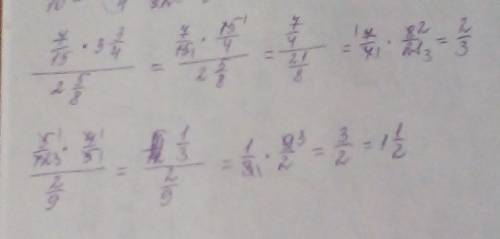 7/15 · 3 3/4 / 2 5/8 = 7/15₁ · 15¹/4 / 2 5/8 = 7/4 / 21/8 = ¹7/4₁ · 8²/21₃ = 2/3
5¹/12₃ · 4¹/5₁ / 2/9 = 1/3 / 2/9 = 1/3₁ · 9³/2 = 3/2 = 1 1/2